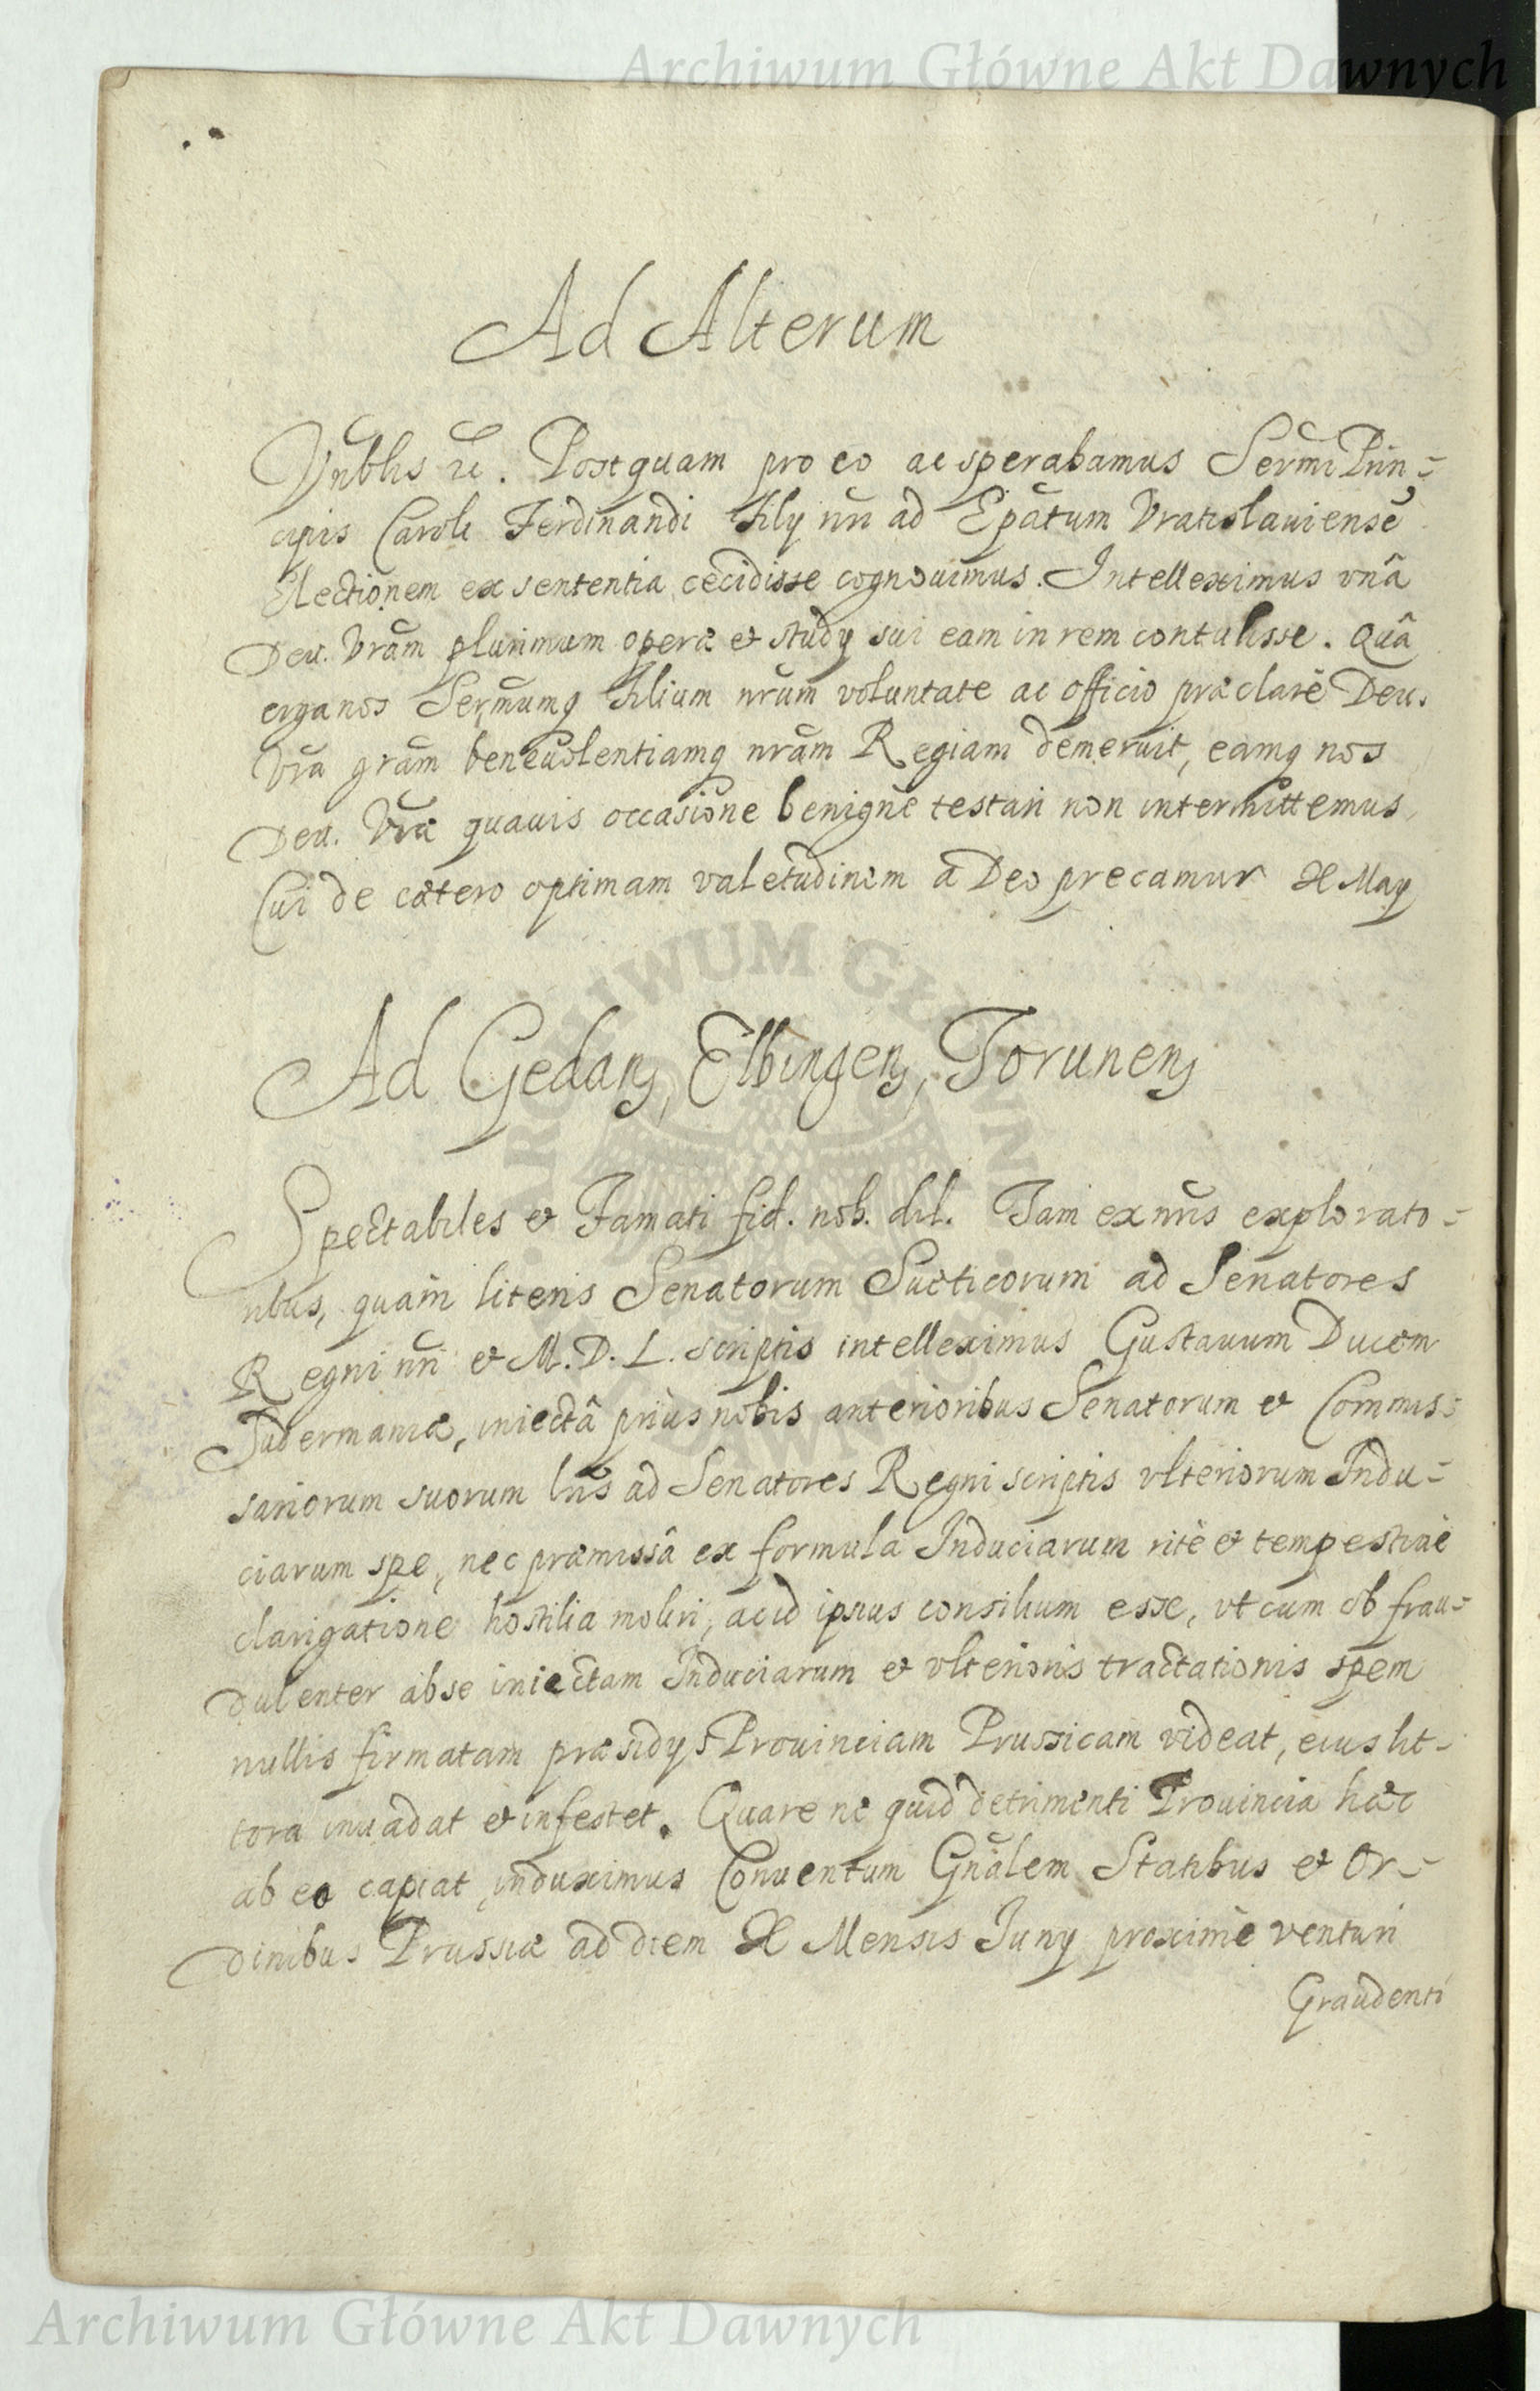 Archiwum Główne Akt Dawnych
Ad Alterum
Vnblis etc. Postquam pro eo ac sperabamus Sermi Prin=
cipis Caroli Ferdinandi Filij nri ad Epatum Vratislauiense
Electionem ex sententia cecidisse cognouimus. Intelleximus vnâ
Deu. Vram plurimum operæ et studij sui eam in rem contulisse. Quâ
erga nos Sermumq Filium nrum voluntate ac officio præclarè Deu.
Vra gram beneuolentiamq nram Regiam demeruit, eamq nos
Deu. Vræ quauis occasione benigne testari non intermittemus,
Cui de cætero optimam valetudinem a Deo precamur X Maij
Ad Gedanens, Elbingens, Torunens
Spectabiles et Famati fid. nob. dil. Tam ex nris explorato=
ribus, quàm literis Senatorum Sueticorum ad Senatores
Regni nri et M. D. L. scriptis intelleximus Gustauum Ducem
Sudermaniæ, iniectâ priùs nobis anterioribus Senatorum et Commis=
sariorum suorum lris ad Senatores Regni scriptis vlteriorum Indu=
ciarum spe, nec præmissâ ex formula Induciarum ritè et tempestiuè
clarigatione hostilia moliri, ac id ipsius consilium esse, vt cum ob frau=
dulenter ab se iniectam Induciarum et vlterioris tractationis spem
nullis firmatam præsidijs Prouinciam Prussicam videat, eius lit=
tora inuadat et infestet. Quare ne quid detrimenti Prouincia hæc
ab eo capiat, induximus Conuentum Gnalem Statibus et Or=
dinibus Prussiæ ad diem X Mensis Iunij proximè venturi
Graudenti
Archiwum Główne Akt Dawnych